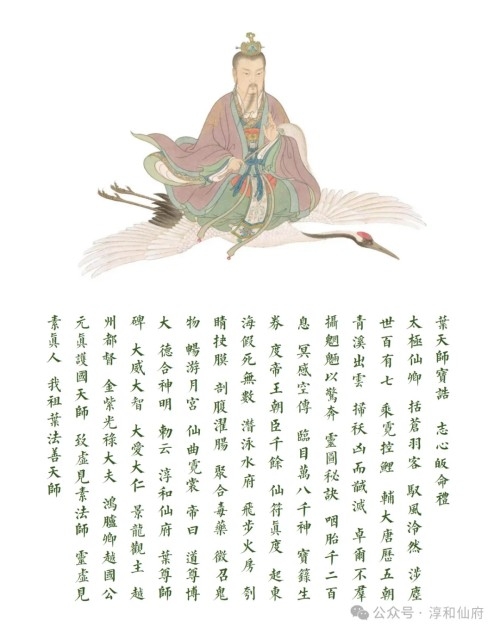 葉天師寶誥　志心皈命禮
太極仙卿　括蒼羽客　馭風泠然　涉塵
世百有七　乘霓控鯉　輔大唐歷五朝
青溪出雲　掃祆凶而誠滅　卓爾不羣
攝魍魎以驚奔　靈圖秘訣　咽胎千二百
息　冥感空傳　臨目萬八千神　寶籙生
券　度帝王朝臣千餘　仙符真度　起東
海假死無數　潛泳水府　飛步火房　刳
睛抉膜　剖腹濯腸　聚合毒藥　徵召鬼
物　暢游月宮　仙曲霓裳　帝曰　道尊博
大　德合神明　勅云　淳和仙府　葉尊師
碑　大威大智　大愛大仁　景龍觀主　越
州都督　金紫光祿大夫　鴻臚卿越國公
元眞護國天師　致虛見素法師　靈虛見
素眞人　我祖葉法善天師
公众号·淳和仙府